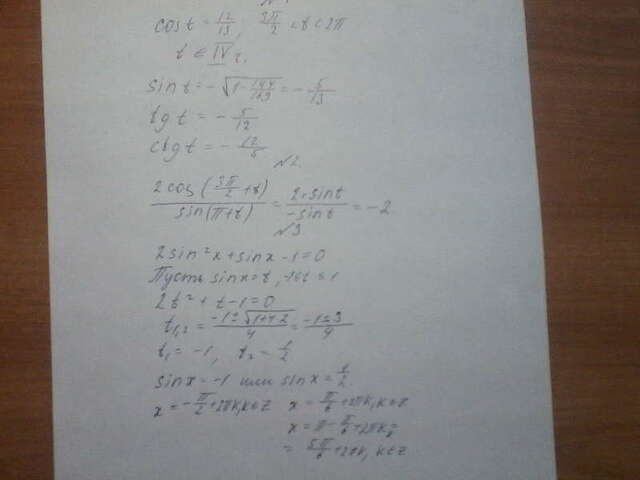 cos t = 12/13, 3π/2 < t < 2π
t ∈ IV ч.
sin t = -√(1 - 144/169) = -5/13
tg t = -5/12
ctg t = -12/5
№2.
2cos(3π/2 + t) / sin(π + t) = 2·sin t / -sin t = -2
№3
2sin²x + sinx - 1 = 0
Пусть sinx = t, -1≤t≤1
2t² + t - 1 = 0
t₁,₂ = (-1 ± √(1+4·2)) / 4 = (-1 ± 3) / 4
t₁ = -1, t₂ = 1/2
sinx = -1 или sinx = 1/2.
x = -π/2 + 2πk, k∈Z x = π/6 + 2πk, k∈Z
x = π - π/6 + 2πk =
= 5π/6 + 2πk, k∈Z